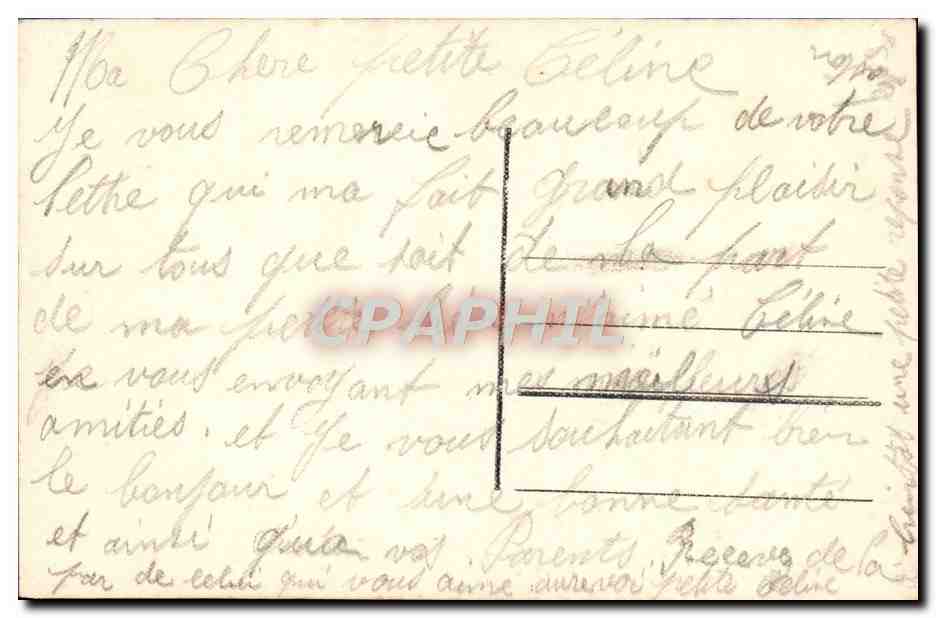 Ma Chere petite Céline
Je vous remercie beaucoup de votre
lettre qui ma fait grand plaisir
sur tous que soit de la part
de ma petite bien aimé Céline
en vous envoyant mes meilleurs
amitiés. et Je vous souhaitant bien
le bonjour et une bonne santé
et ainsi qu'a vos Parents. Receve de la
par de celui qui vous aime aurevoi petite Céline
une petite reponse
CPAPHIL